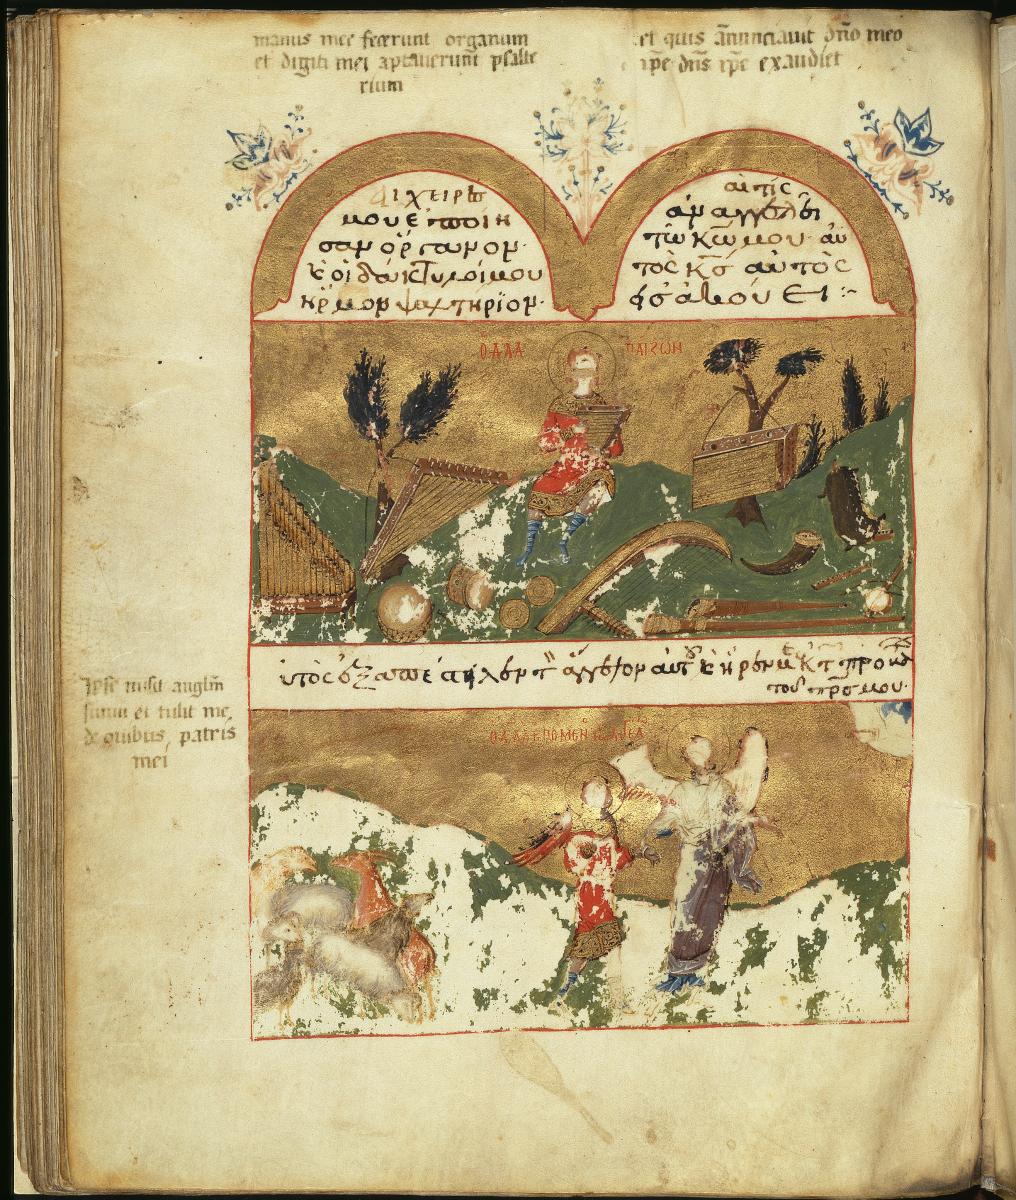 manus mee fecerunt organum
et digiti mei aptauerunt psalte
rium
et quis añunciauit dño meo
ipe dñs ipe exaudiet
Αι χειρες
μου ἐποίη
σαν ὄργανον·
κ οἱ δάκτυλοί μου
ἥρμοσαν ψαλτήριον·
αὶ τίς
ἀναγγελεῖ
τῶ κω μου· αὐ
τὸς κς αὐτὸς
εἰσακούει :~
Ο ΔΑΔ
ΠΑΙΖΩΝ
υτὸς ἐξαπέστειλεν τὸν ἄγγελον αὐτοῦ κ ἦρέν με ἐκ τῶν προβά
των τοῦ πρσ μου·
Ipse misit anglm
suum et tulit me,
de ouibus, patris
mei
Ο ΔΑΔ ΕΠΟΜΕΝΟΣ